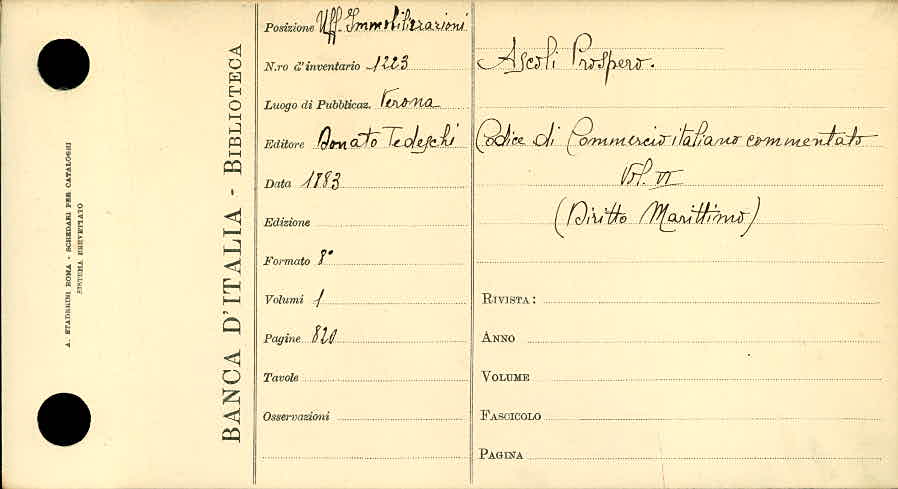 A. STADERINI ROMA - SCHEDARI PER CATALOGHI
SISTEMA BREVETTATO
BANCA D'ITALIA - BIBLIOTECA
Posizione Uff. Immobilizzazioni
N.ro d'inventario 1223
Luogo di Pubblicaz. Verona
Editore Donato Tedeschi
Data 1883
Edizione
Formato 8°
Volumi 1
Pagine 820
Tavole
Osservazioni
Ascoli Prospero.
Codice di Commercio italiano commentato
Vol. VI
(Diritto Marittimo)
RIVISTA:
ANNO
VOLUME
FASCICOLO
PAGINA